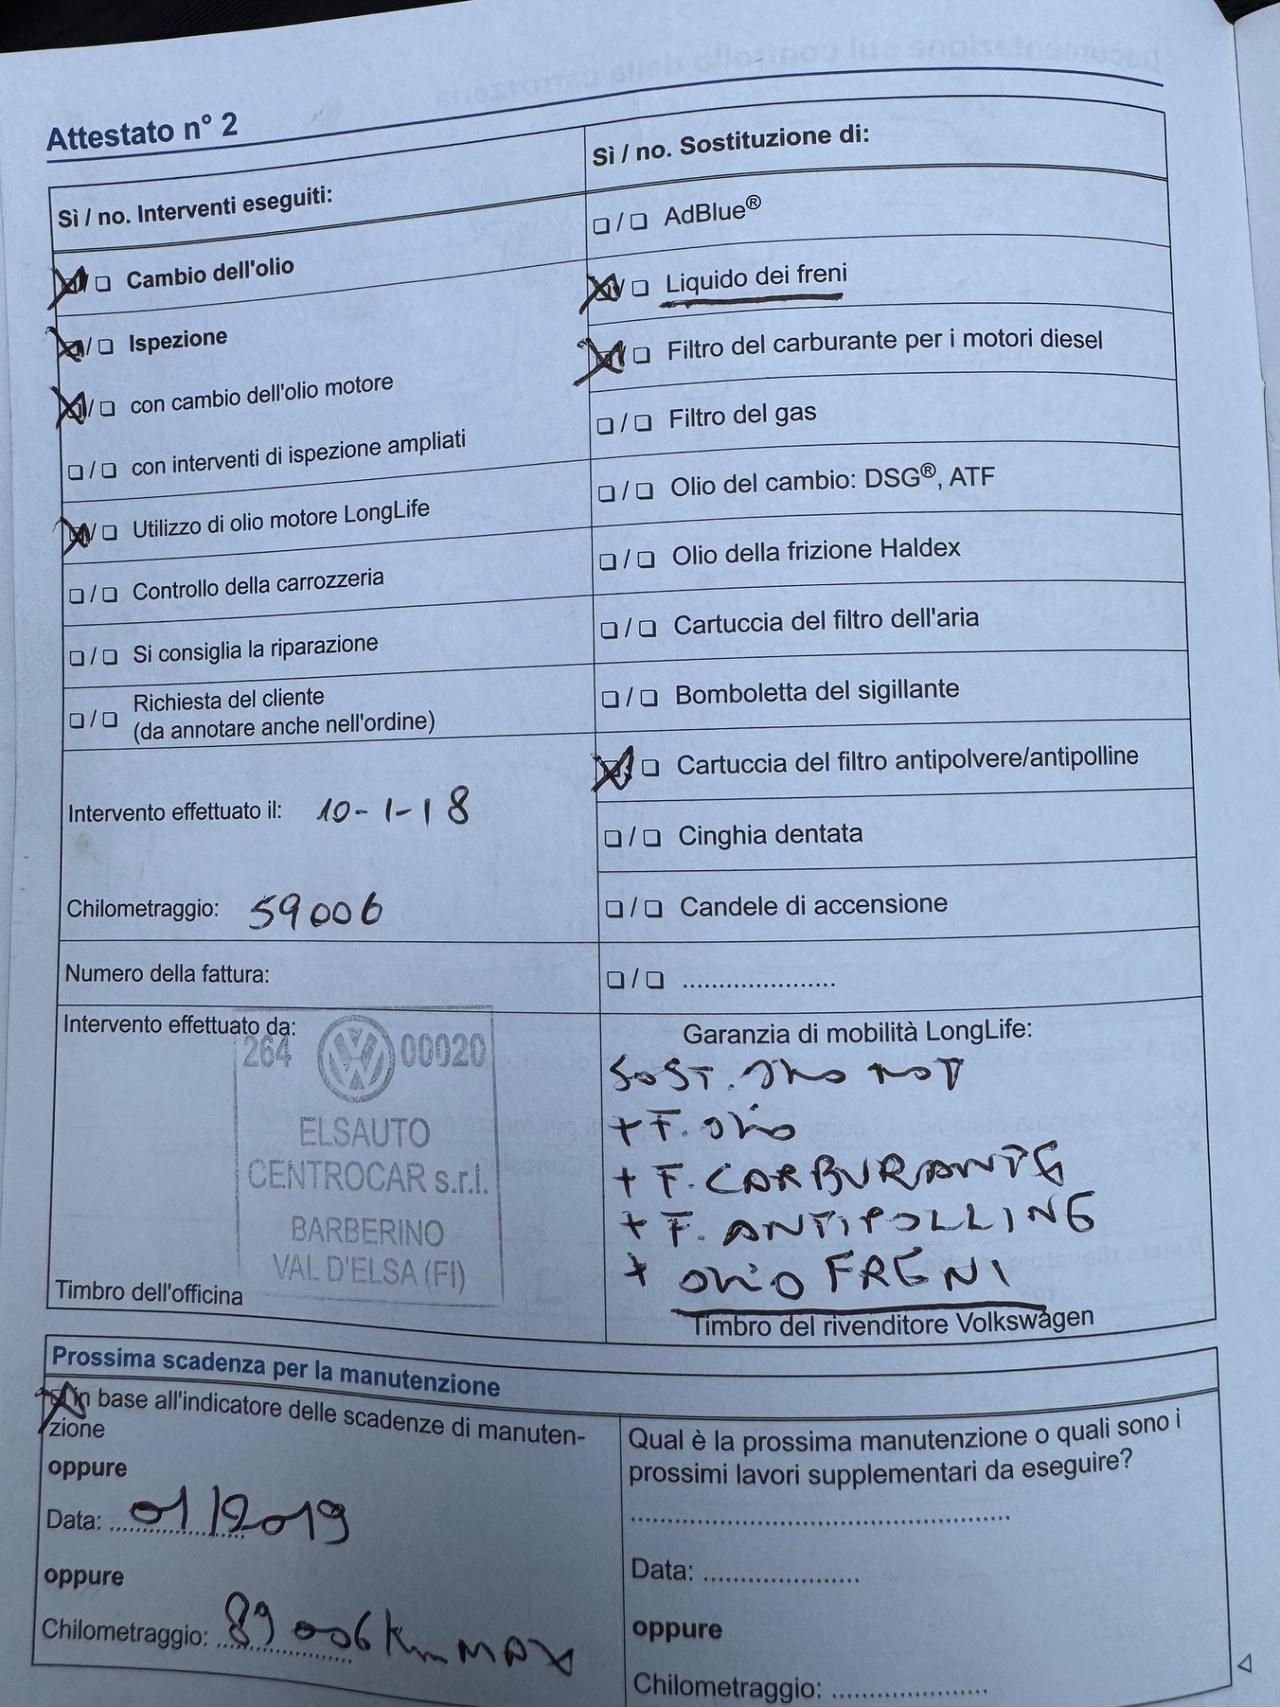 Attestato n° 2
Sì / no. Interventi eseguiti:
Cambio dell'olio
Ispezione
con cambio dell'olio motore
con interventi di ispezione ampliati
Utilizzo di olio motore LongLife
Controllo della carrozzeria
Si consiglia la riparazione
Richiesta del cliente
(da annotare anche nell'ordine)
Intervento effettuato il: 10-1-18
Chilometraggio: 59006
Numero della fattura:
Intervento effettuato da:
264 00020
ELSAUTO
CENTROCAR s.r.l.
BARBERINO
VAL D'ELSA (FI)
Timbro dell'officina
Sì / no. Sostituzione di:
AdBlue®
Liquido dei freni
Filtro del carburante per i motori diesel
Filtro del gas
Olio del cambio: DSG®, ATF
Olio della frizione Haldex
Cartuccia del filtro dell'aria
Bomboletta del sigillante
Cartuccia del filtro antipolvere/antipolline
Cinghia dentata
Candele di accensione
....................
Garanzia di mobilità LongLife:
SOST. OLIO MOT
+ F. OLIO
+ F. CARBURANTE
+ F. ANTIPOLLINE
+ OLIO FRENI
Timbro del rivenditore Volkswagen
Prossima scadenza per la manutenzione
In base all'indicatore delle scadenze di manuten-
zione
oppure
Data: 01/2019
oppure
Chilometraggio: 89006 Km MAX
Qual è la prossima manutenzione o quali sono i
prossimi lavori supplementari da eseguire?
Data: ....................
oppure
Chilometraggio: ....................